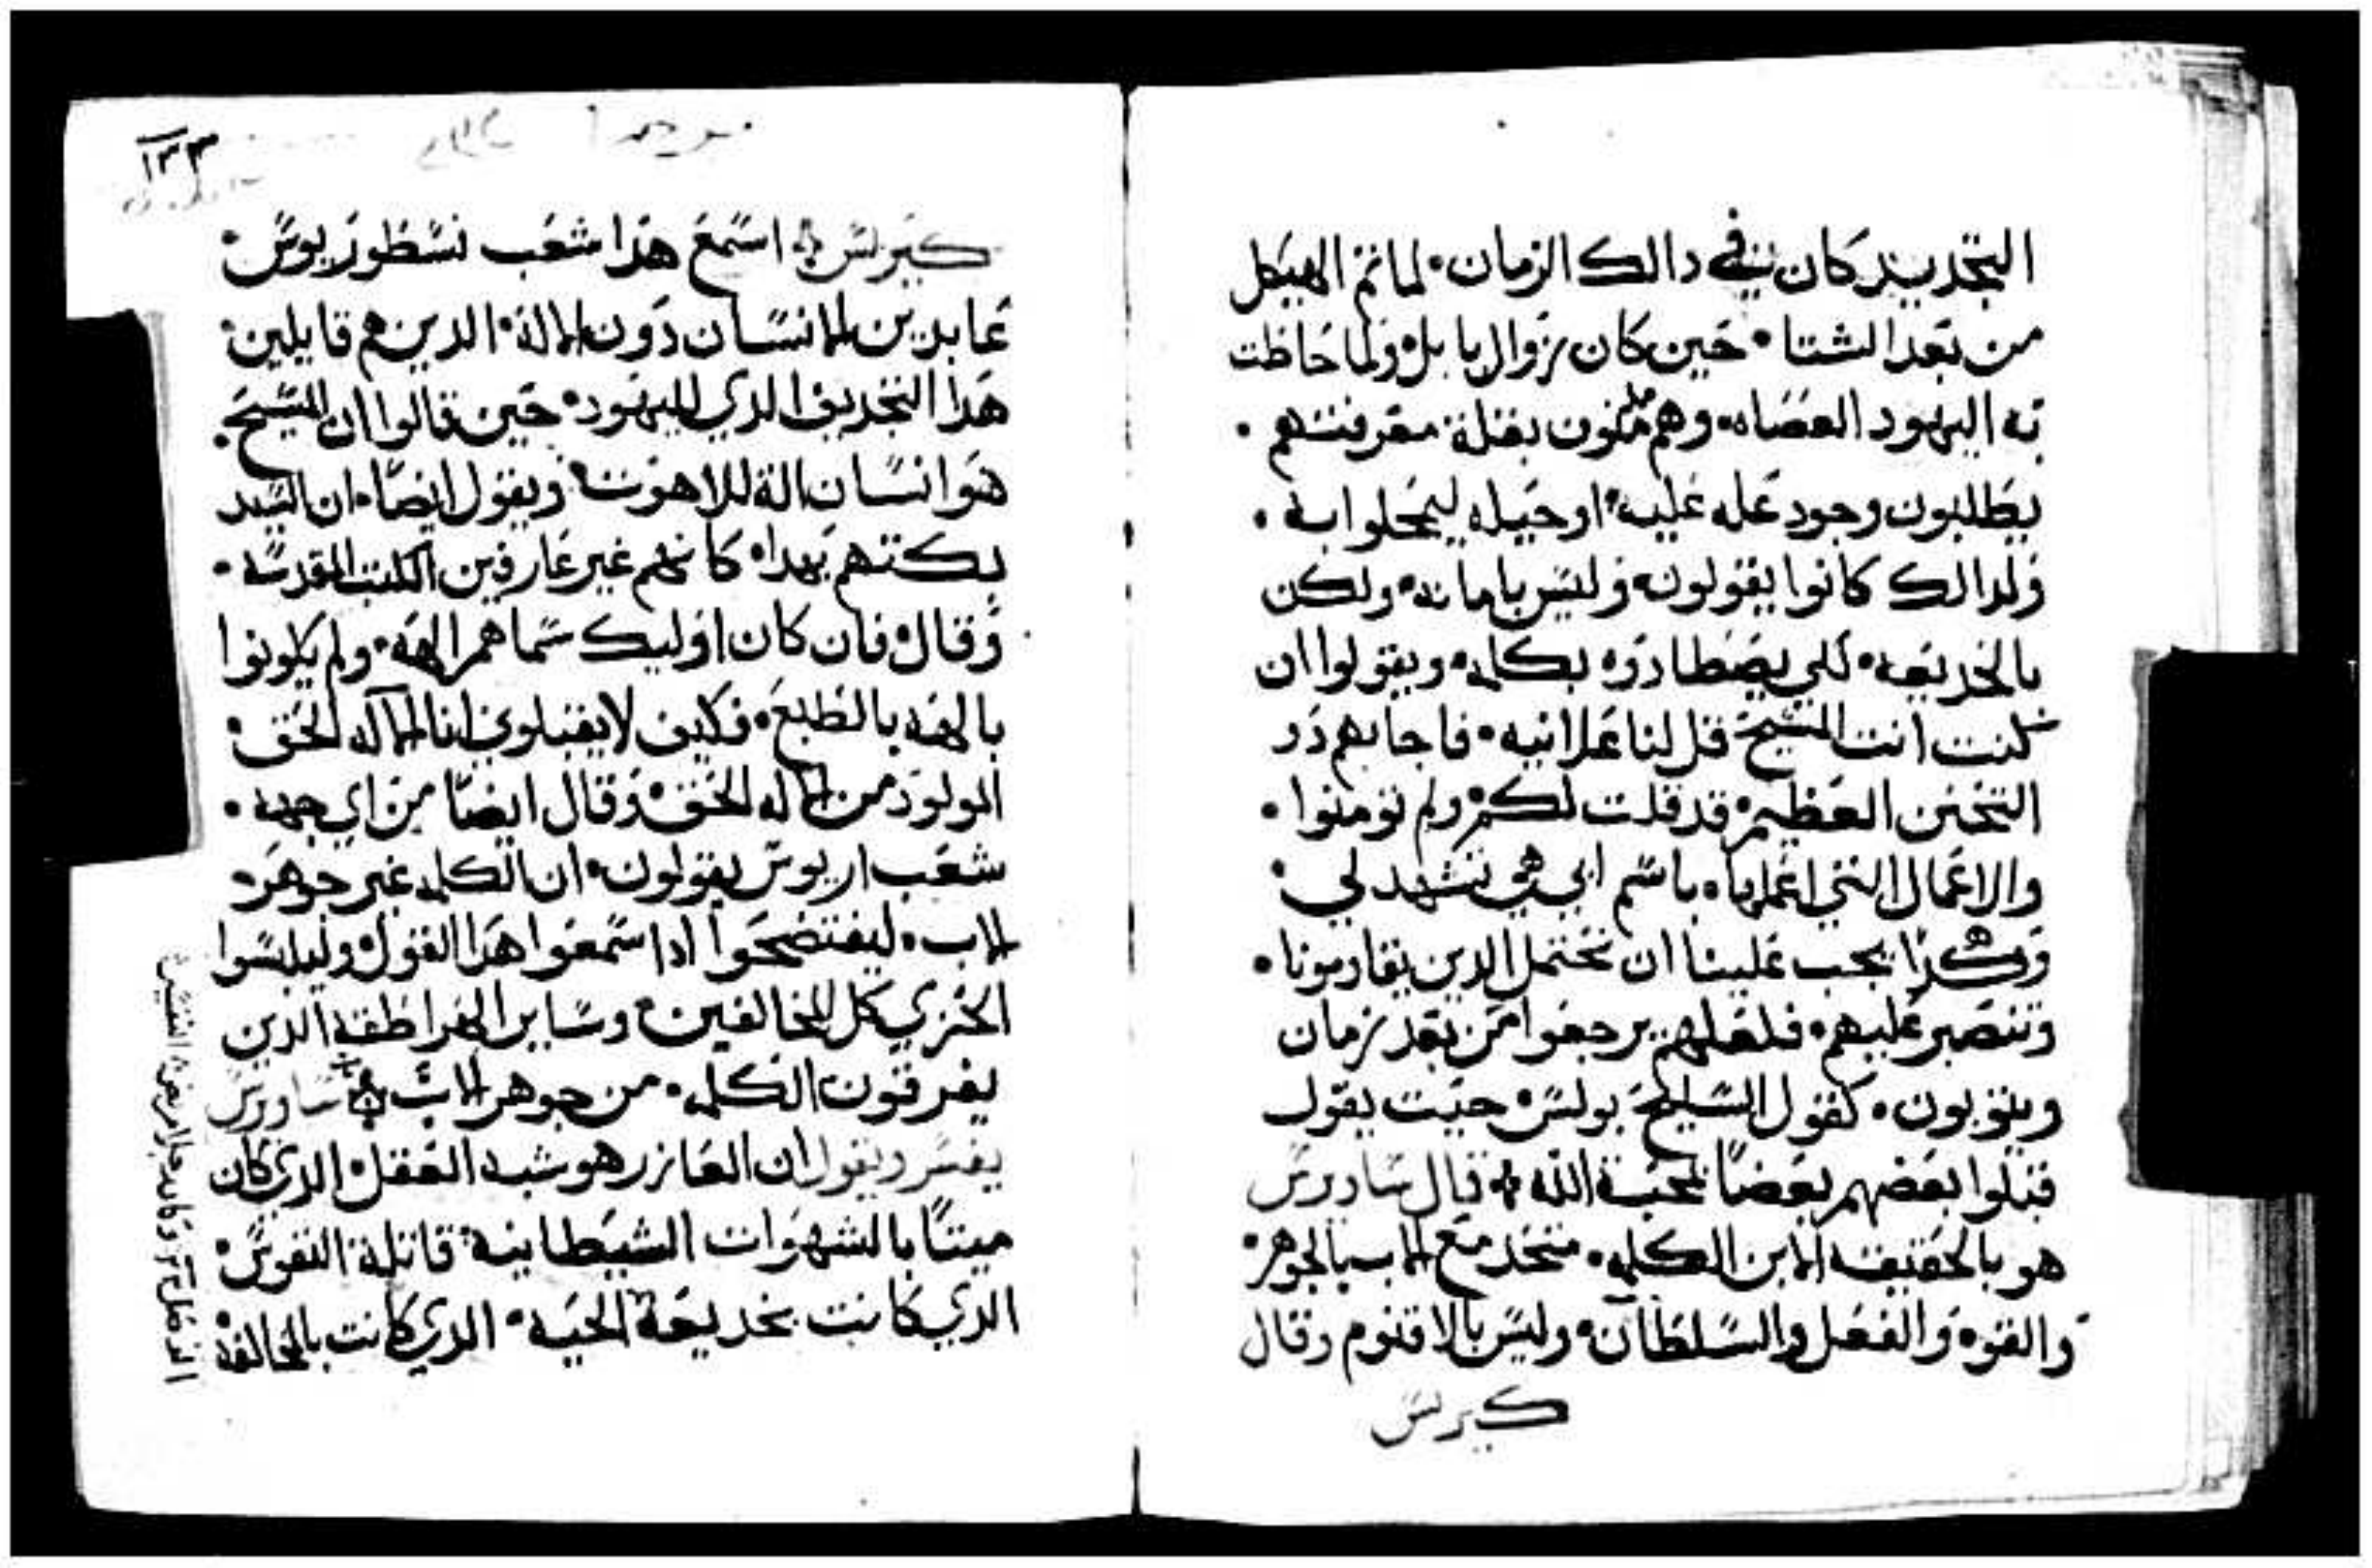 التجديد كان في دالك الزمان · لما تم الهيكل
من بعد الشتا · حين كان زوال بابل · ولما حاطت
به اليهود العصاه · وهم مملون بقلة معرفتهم ·
يطلبون وجود عله عليه · او حيله ليمحلوا به ·
ولدالك كانوا يقولون · وليس بامانه · ولكن
بالخديعه · لكي يصطادوه بكلمه · ويقولوا ان
كنت انت المسيح قل لنا علانيه · فاجابهم دو
التحنن العظيم · قد قلت لكم · ولم تومنوا ·
والاعمال التي اعملها · باسم ابي هي تشهد لي ·
وهكذا يجب علينا ان نحتمل الدين يقاومونا ·
وننصبر عليهم · فلعلهم يرجعوا من بعد زمان
ويتوبون · كقول السليح بولس · حيت يقول
قبلوا بعضهم بعضًا لمحبة الله ܀ قال ساويرس
هو بالحقيقه الابن الكلمه · متحد مع الاب بالجوهر ·
والقوه والفعل والسلطان · وليس بالاقنوم وقال
كيرلس
١٣٣
كيرلس ܀ اسمع هذا شعب نسطوريوس ·
عابدين الانسان دون الاله · الدين هم قايلين ·
هذا التجديف الدي لليهود · حين قالوا ان المسيح ·
هو انسان الة للاهوت · ويقول ايضًا · ان السيد
بكتهم بهدا · كانهم غير عارفين الكتب المقدسه ·
وقال · فان كان اوليك سماهم الهه · ولم يكونوا
بالهه بالطبع · فكيف لا يقبلون انا الاله الحق ·
المولود من الاله الحق · وقال ايضًا من اي جهه ·
شعب اريوس يقولون · ان الكلمه غير جوهر ·
الاب · ليفتضحوا ادا سمعوا هدا القول · وليلبسوا
الخزي كل المخالفين · وساير الهراطقه الدين
يفرقون الكلمه · من جوهر الاب ܀ ساويرس
يفسر ويقول ان العازر هو شبه العقل · الدي كان
ميتًا بالشهوات الشيطانيه · قاتلة النفوس ·
الدي كانت بخديعة الحيه · الدي كانت بالمخالفه